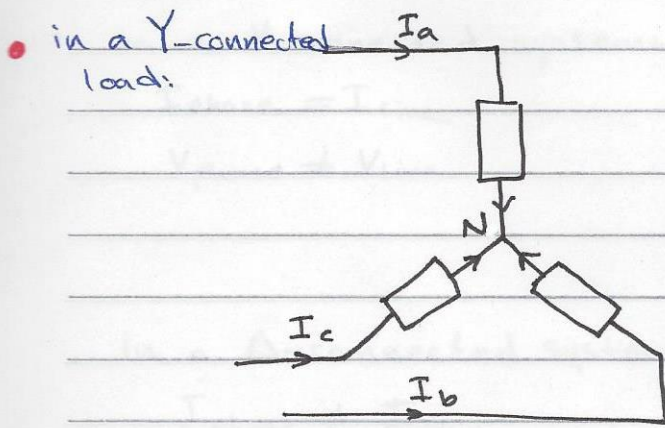 in a Y-connected
load:
Ia
N
Ic
Ib